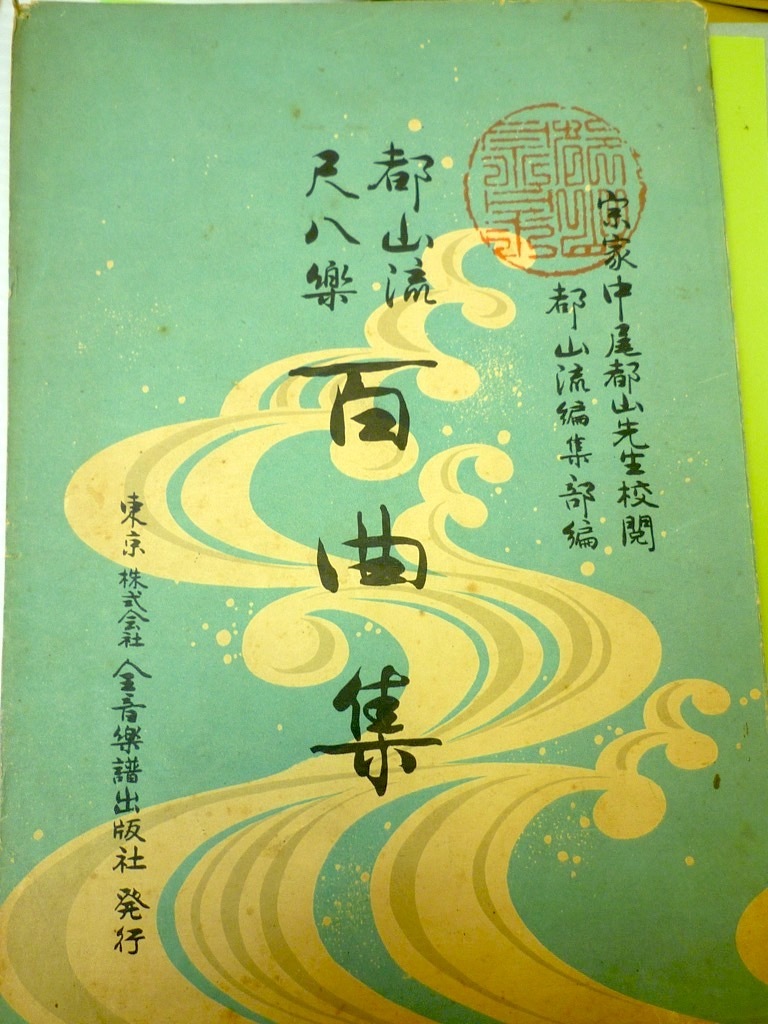 宗家中尾都山先生校閲
都山流編集部編
都山流
尺八樂
百曲集
東京 株式会社 全音樂譜出版社 発行